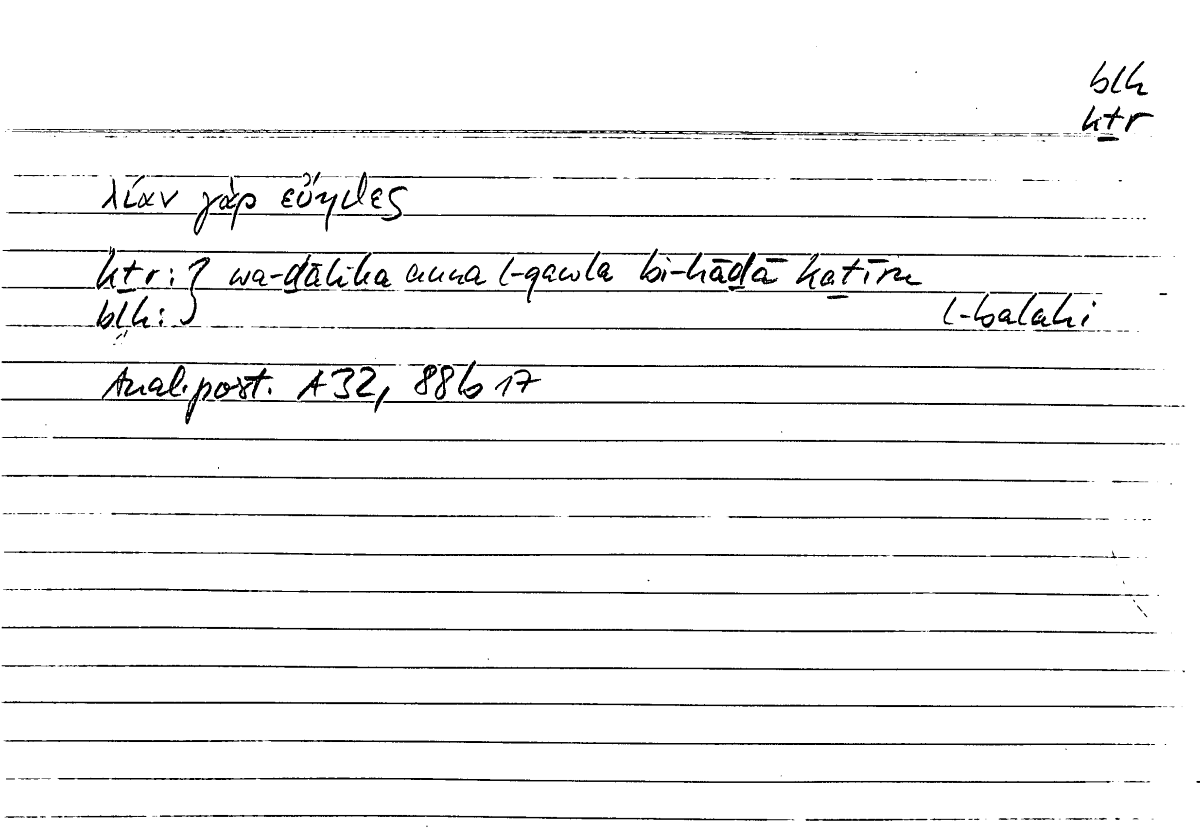 blh
kṯr
λίαν γὰρ εὔηθες
kṯr: } wa-ḏālika anna l-qawla bi-hāḏā kaṯīru
blh: } l-balahi
Anal. post. A 32, 88b 17